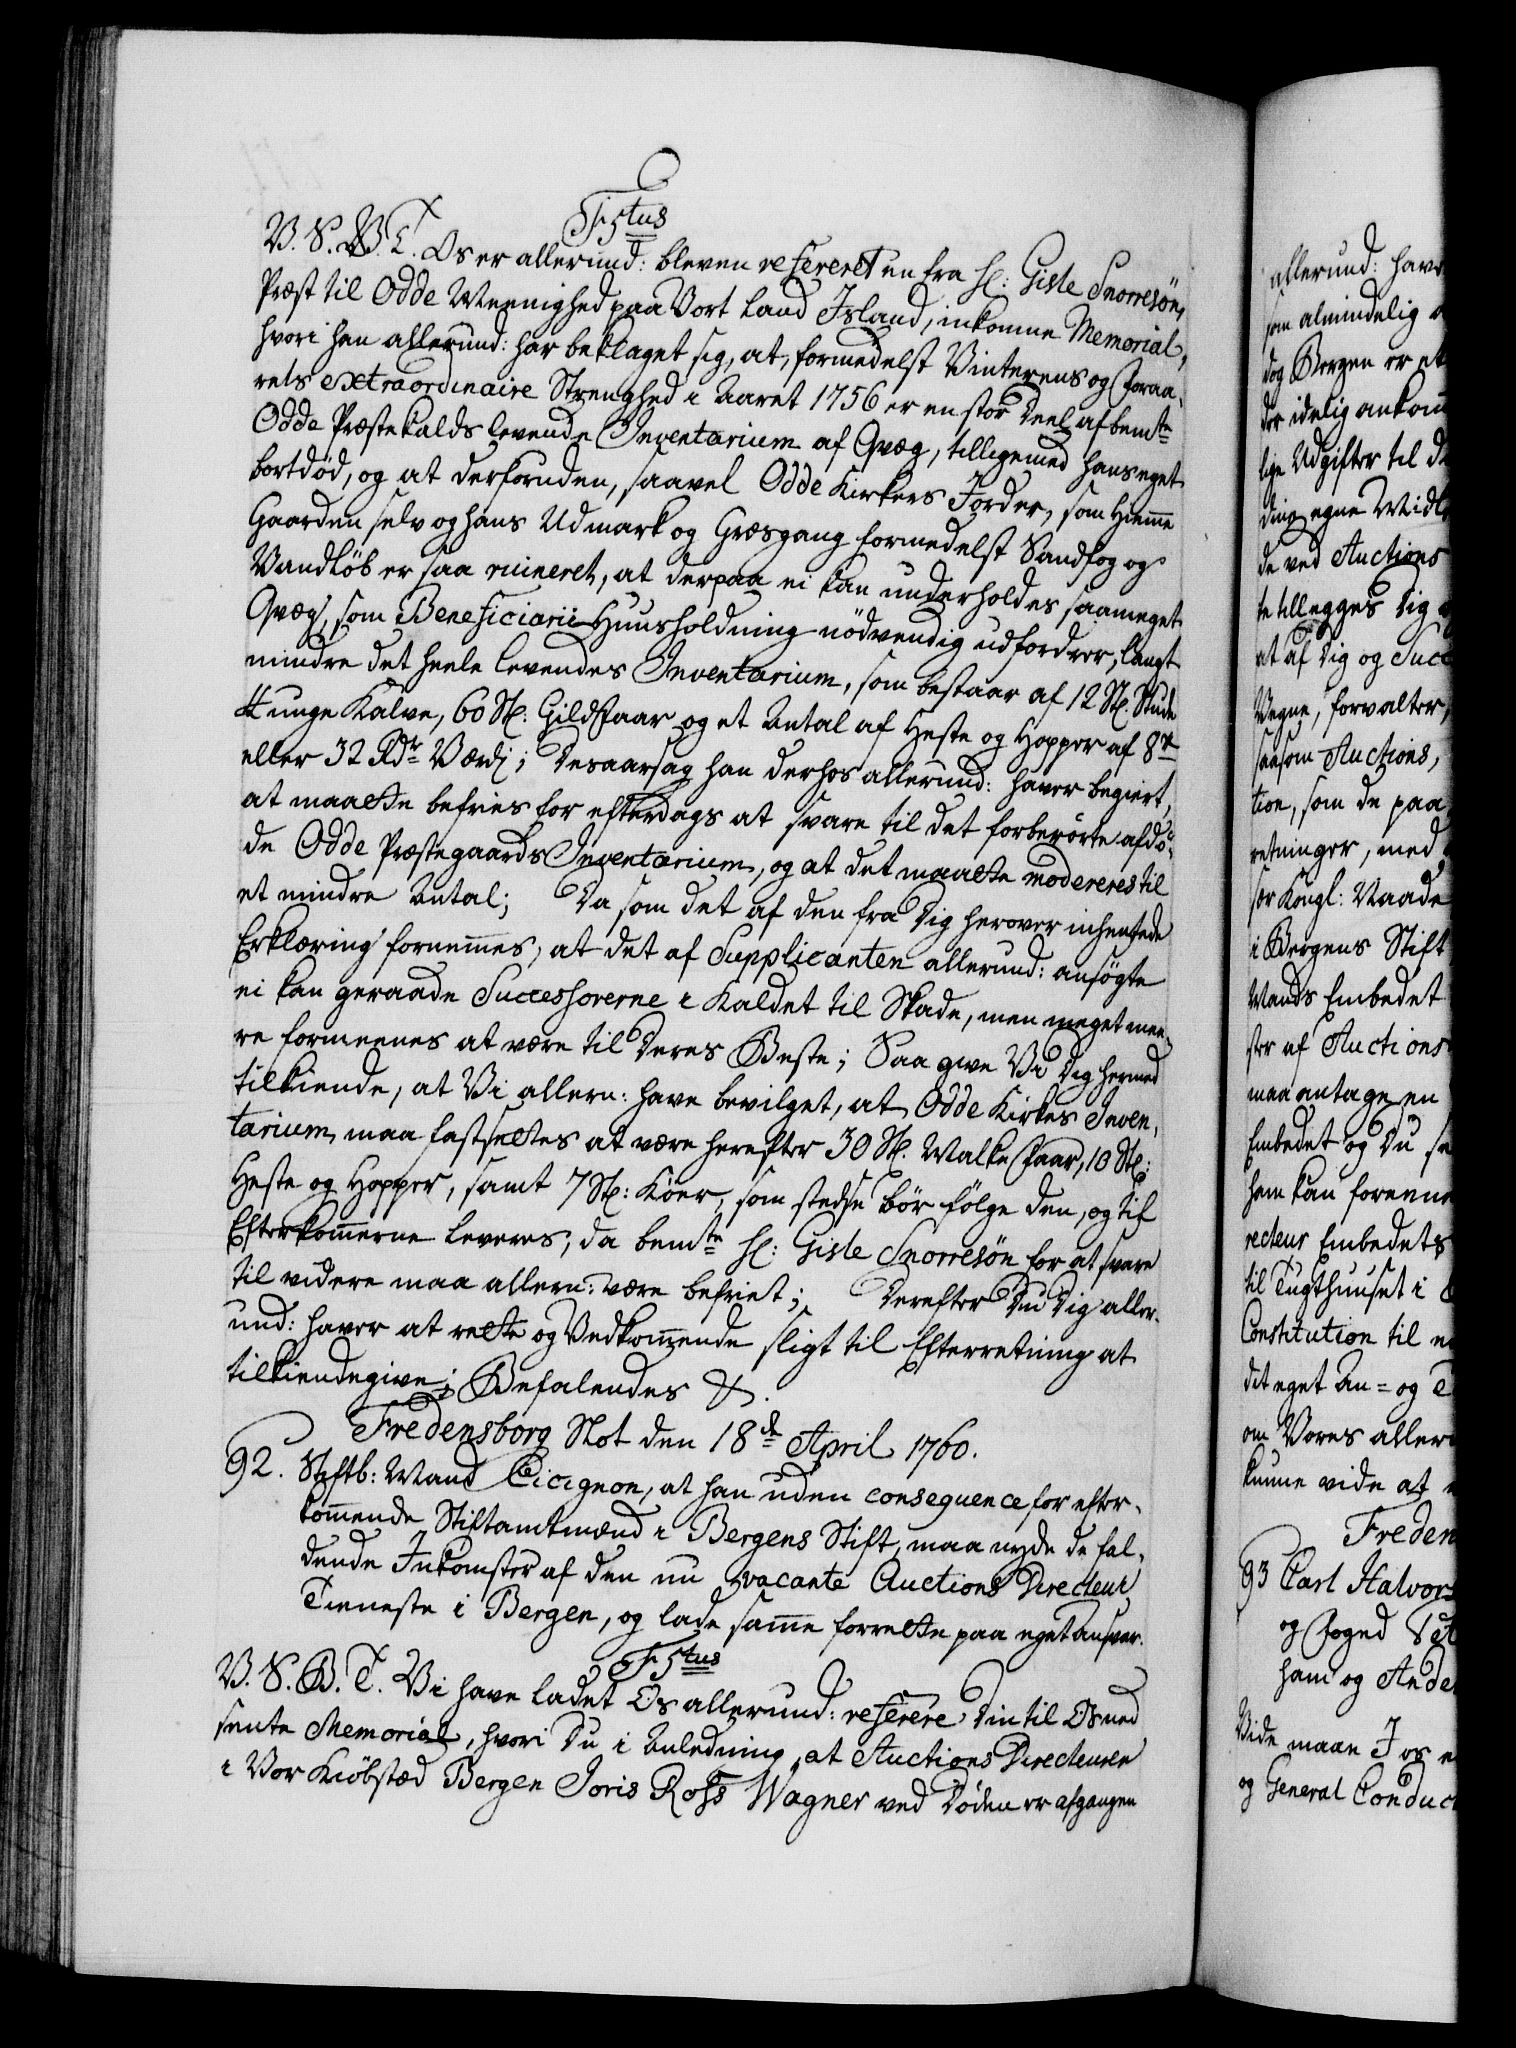 F 5tus
V. S. V. T. Os er allerund: bleven refereret en fra Hl: Gisle Snorresøn,
Præst til Odde Meenighed paa Vort Land Island, inkomne Memorial,
hvori han allerund: har beklaget sig, at, formedelst Vinterens og Foraa-
rets extraordinaire Strenghed i Aaret 1756 er en stor Deel af bemte
Odde Præstekalds levende Inventarium af Qvæg, tilligemed hans eget
bortdød, og at derforuden, saavel Odde Kirkers Jorder, som Hieme
Gaarden selv og hans Udmark og Græsgang formedelst Sandfog og
Vandløb er saa ruineret, at derpaa ei kan underholdes saameget
Qvæg, som Beneficiarii Huusholdning nødvendig udfordrer, langt
mindre det heele levendes Inventarium, som bestaar af 12 St. Stude
4 unge Kalve, 60 St: Gild Faar og et Antal af Heste og Hopper af 8te
eller 32 Rdr Værdj; Desaarsag han derhos allerund: haver begiert,
at maatte befries for efterdags at svare til det forberørte afdø-
de Odde Præstegaards Inventarium, og at det maatte modereres til
et mindre Antal; Da som det af den fra Dig herover inhentede
Erklæring fornemes, at det af Supplicanten allerund: ansøgte
ei kan geraade Successorerne i Kaldet til Skade, men meget mee-
re formeenes at være til Deres Beste; Saa give Vi Dig hermed
tilkiende, at Vi allern: have bevilget, at Odde Kirkes Inven-
tarium maa fastsettes at være herefter 30 St. Malke Faar, 10 St:
Heste og Hopper, samt 7 St: Køer, som stedse bør følge den, og til
Efterkomerne leveres, da bemte Hl: Gisle Snorresøn for at svare
til videre maa allern: være befriet; Derefter Du Dig aller-
und: haver at rette og Vedkomende sligt til Efterretning at
tilkiendegive; Befalendes &.
Fredensborg Slot den 18de April 1760.
92. Stiftb: Mand Cicignon, at han uden consequence for efter-
komende Stiftamtmænd i Bergens Stift, maa nyde de fal-
dende Inkomster af den nu vacante Auctions Directeur
Tieneste i Bergen, og lade same forrette paa eget Ansvar.
F 5tus
V. S. G. T. Vi have ladet Os allerund: referere Din til Os ned
sente Memorial, hvori Du i Anledning, at Auctions Directeuren
i Vor Kiøbstæd Bergen Joris Ross Wagner ved Døden er afgangen
allerund: have
som almindelig
dog Bergen er et
der idelig ankom
lige Udgifter til d
dine egne Midle
de ved Auctions
te tillegges Dig
at af Dig og Succ
Vegne, forvalter,
saasom Auctions,
tion, som de paa
retninger, med
for Kongl: Naade
i Bergens Stift
Mands Embedet
ster af Auctions
maa antage en
Embedet og Du
ham kan forevur
recteur Embedets
til Tugthuuset i
Constitution til
dit eget An= og T
om Vores aller
kunne vide at
Freden
93 Carl Halvor
og Foged Pet
ham og Ande
Vide maae I os
og General Conduc